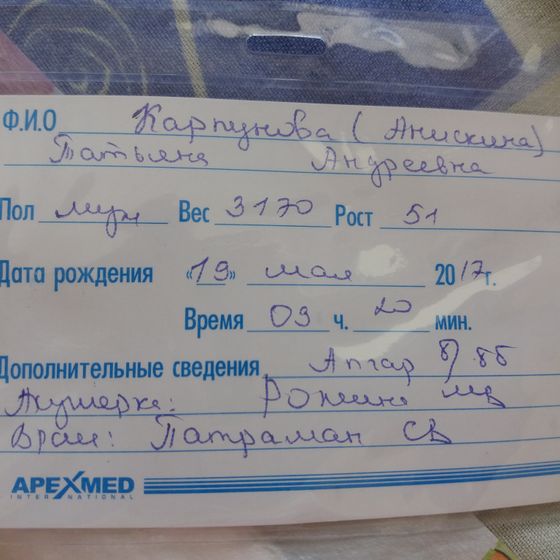 Ф.И.О Карпунова (Анискина)
Татьяна Андреевна
Пол муж Вес 3170 Рост 51
Дата рождения «19» мая 2017г.
Время 03 ч. 20 мин.
Дополнительные сведения Апгар 8/8б
Акушерка:
Врач: Патраман СВ
APEXMED
INTERNATIONAL